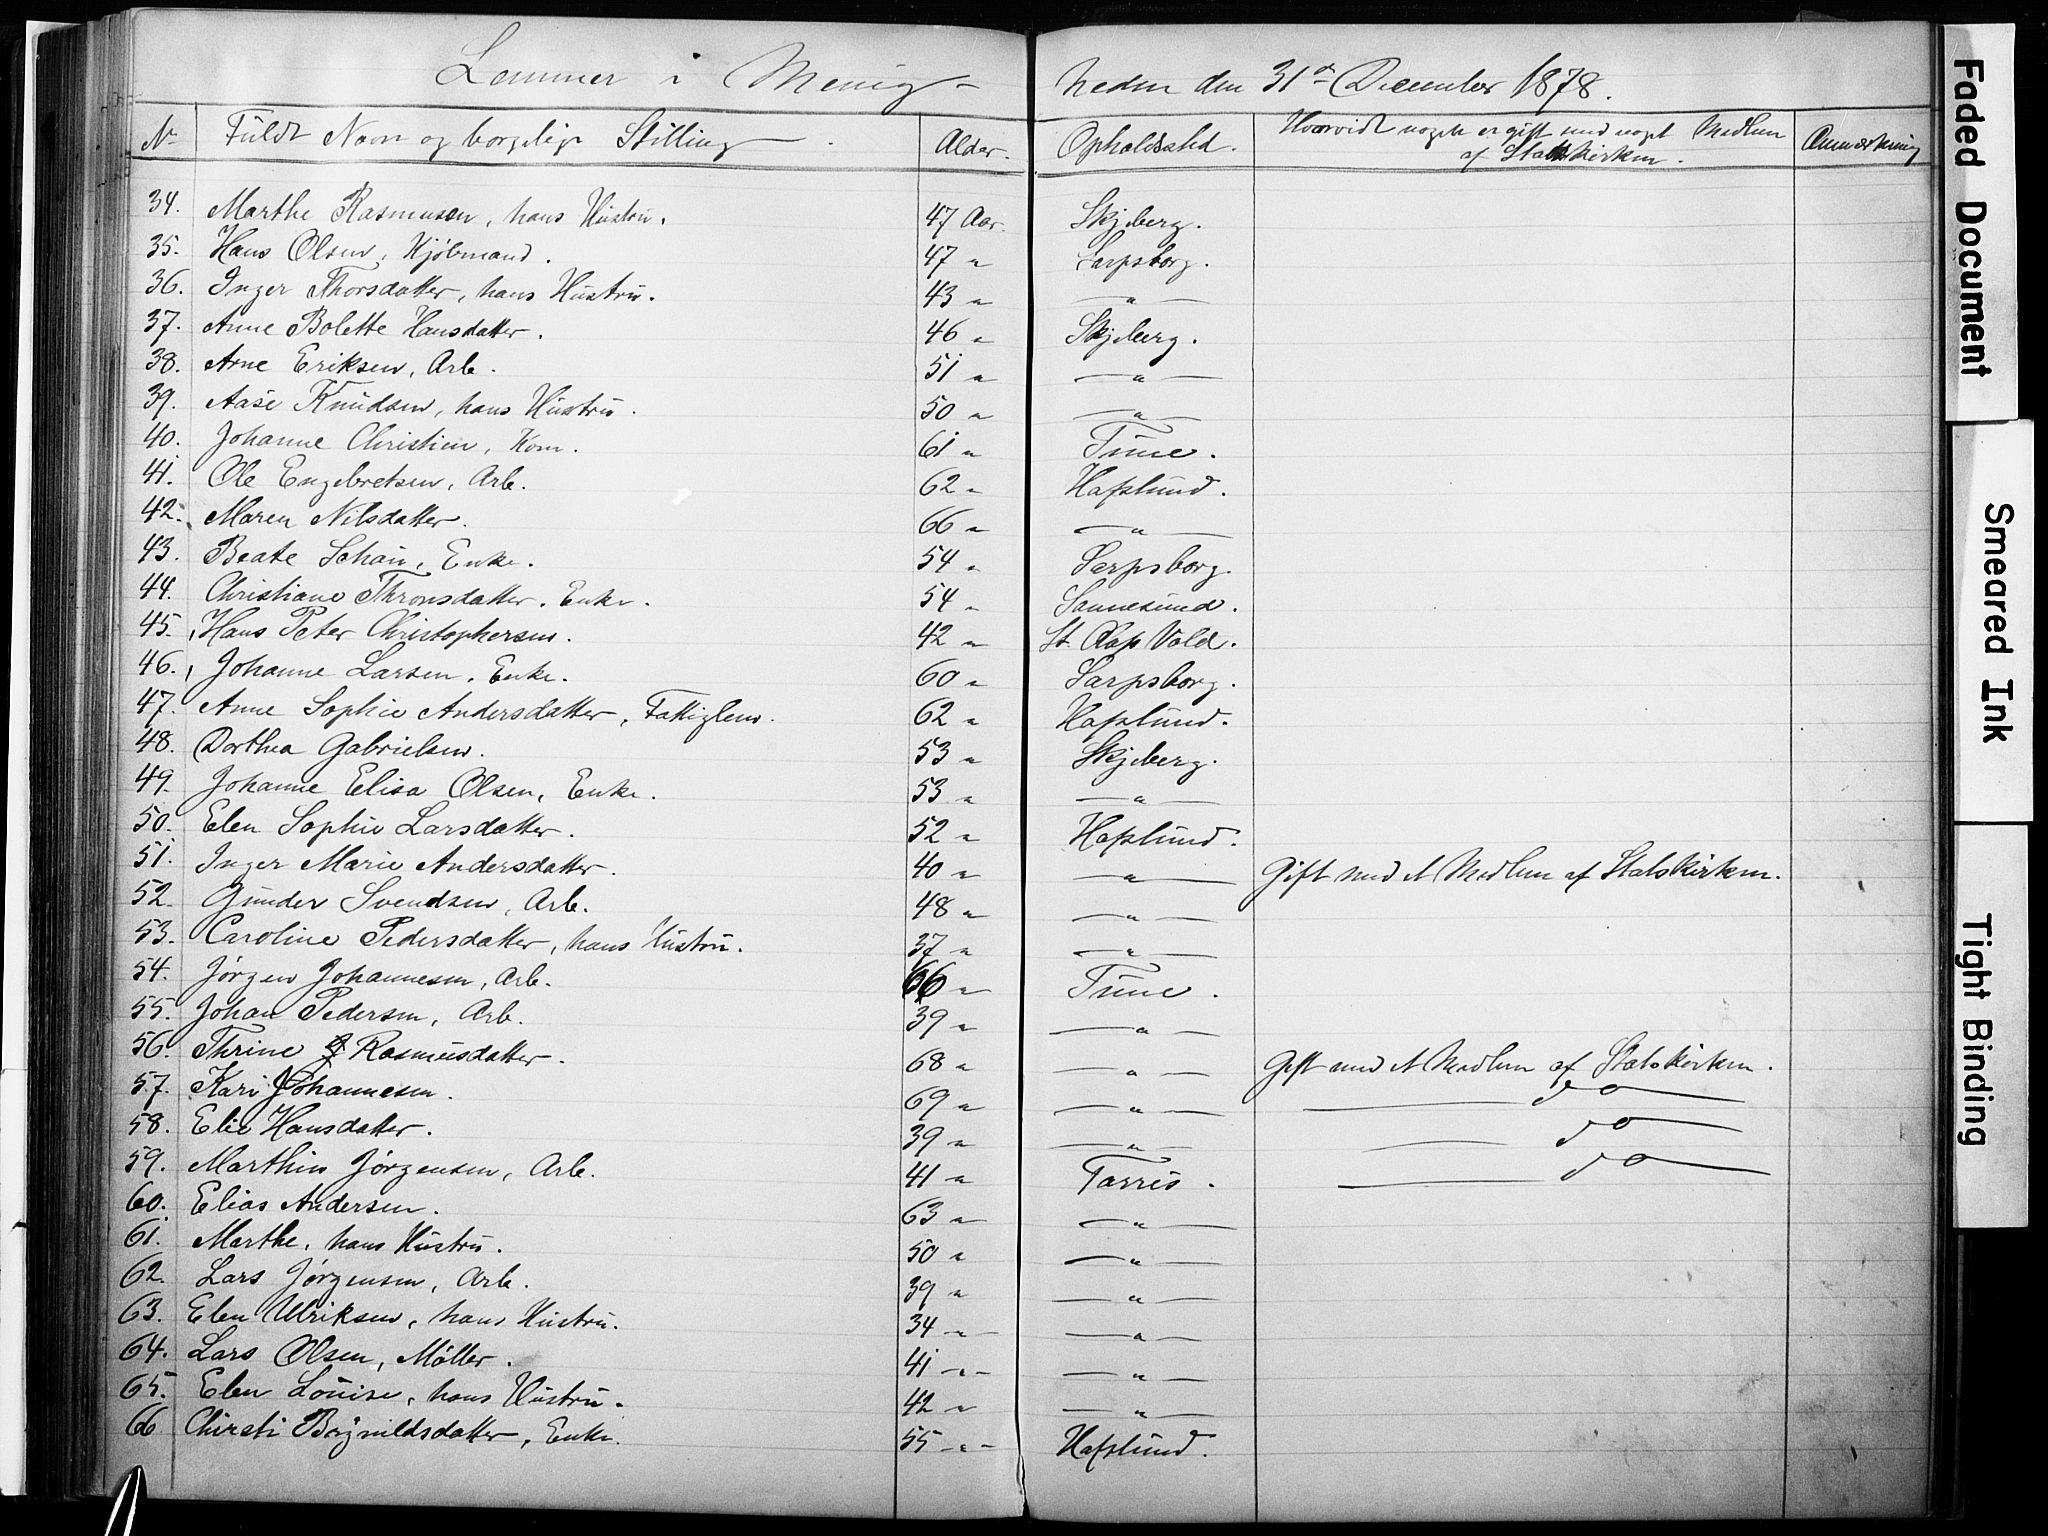 Lemmer i Menig- heden den 31te December 1878.
No Fuldt Navn og borgelige Stilling. Alder. Opholdssted. Hvorvidt nogen er gift med noget Medlem af Statskirken. Anmærkning
34. Marthe Rasmusen, hans Hustru. 47 Aar. Skjeberg.
35. Hans Olsen, Kjøbmand. 47 " Sarpsborg.
36. Inger Thorsdatter, hans Hustru. 43 " — " —
37. Anne Bolette Hansdatter. 46 " Skjeberg.
38. Arne Eriksen, Arb. 51 " — " —
39. Aase Knudsen, hans Hustru. 50 " — " —
40. Johanne Christien, Kone. 61 " Tune.
41. Ole Engebretsen, Arb. 62 " Hafslund.
42. Maren Nilsdatter. 66 " — " —
43. Beate Schau, Enke. 54 " Sarpsborg.
44. Christiane Thronsdatter, Enke. 54 " Sannesund.
45. Hans Peter Christophersen. 42 " St. Olafs Vold.
46. Johanne Larsen, Enke. 60 " Sarpsborg.
47. Anne Sophie Andersdatter, Fattiglem. 62 " Hafslund.
48. Dorthea Gabrielsen. 53 " Skjeberg.
49. Johanne Elisa Olsen, Enke. 53 " — " —
50. Elen Sophie Larsdatter. 52 " Hafslund.
51. Inger Marie Andersdatter. 40 " — " — Gift med et Medlem af Statskirken.
52. Gunder Svendsen, Arb. 48 " — " —
53. Caroline Pedersdatter, hans Hustru. 37 " — " —
54. Jørgen Johannesen, Arb. 66 " Tune.
55. Johan Pedersen, Arb. 39 " — " —
56. Thrine Rasmusdatter. 68 " — " — Gift med et Medlem af Statskirken.
57. Kari Johannesen. 69 " — " — — do —
58. Elie Hansdatter. 39 " — " — — do —
59. Marthin Jørgensen, Arb. 41 " Torris. — do —
60. Elias Andersen. 63 " — " —
61. Marthe, hans Hustru. 50 " — " —
62. Lars Jørgensen, Arb. 39 " — " —
63. Elen Ulriksen, hans Hustru. 34 " — " —
64. Lars Olsen, Møller. 41 " — " —
65. Elen Louise, hans Hustru. 42 " — " —
66 Chirsti Bøjnildsdatter, Enke. 55 " Hafslund.
Faded Document
Smeared Ink
Tight Binding